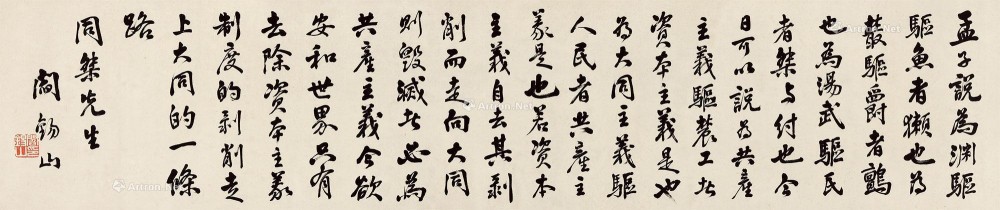 孟子說為淵驅
驅魚者獺也為
叢驅爵者鸇
也為湯武驅民
者桀与紂也今
日可以說為共產
主義驅農工者
資本主義是也
為大同主義驅
人民者共產主
義是也若資本
主義自去其剥
削而走向大同
则毀滅者必為
共產主義今欲
安和世界只有
去除资本主義
制度的剥削走
上大同的一條
路
同桀先生
閻錫山